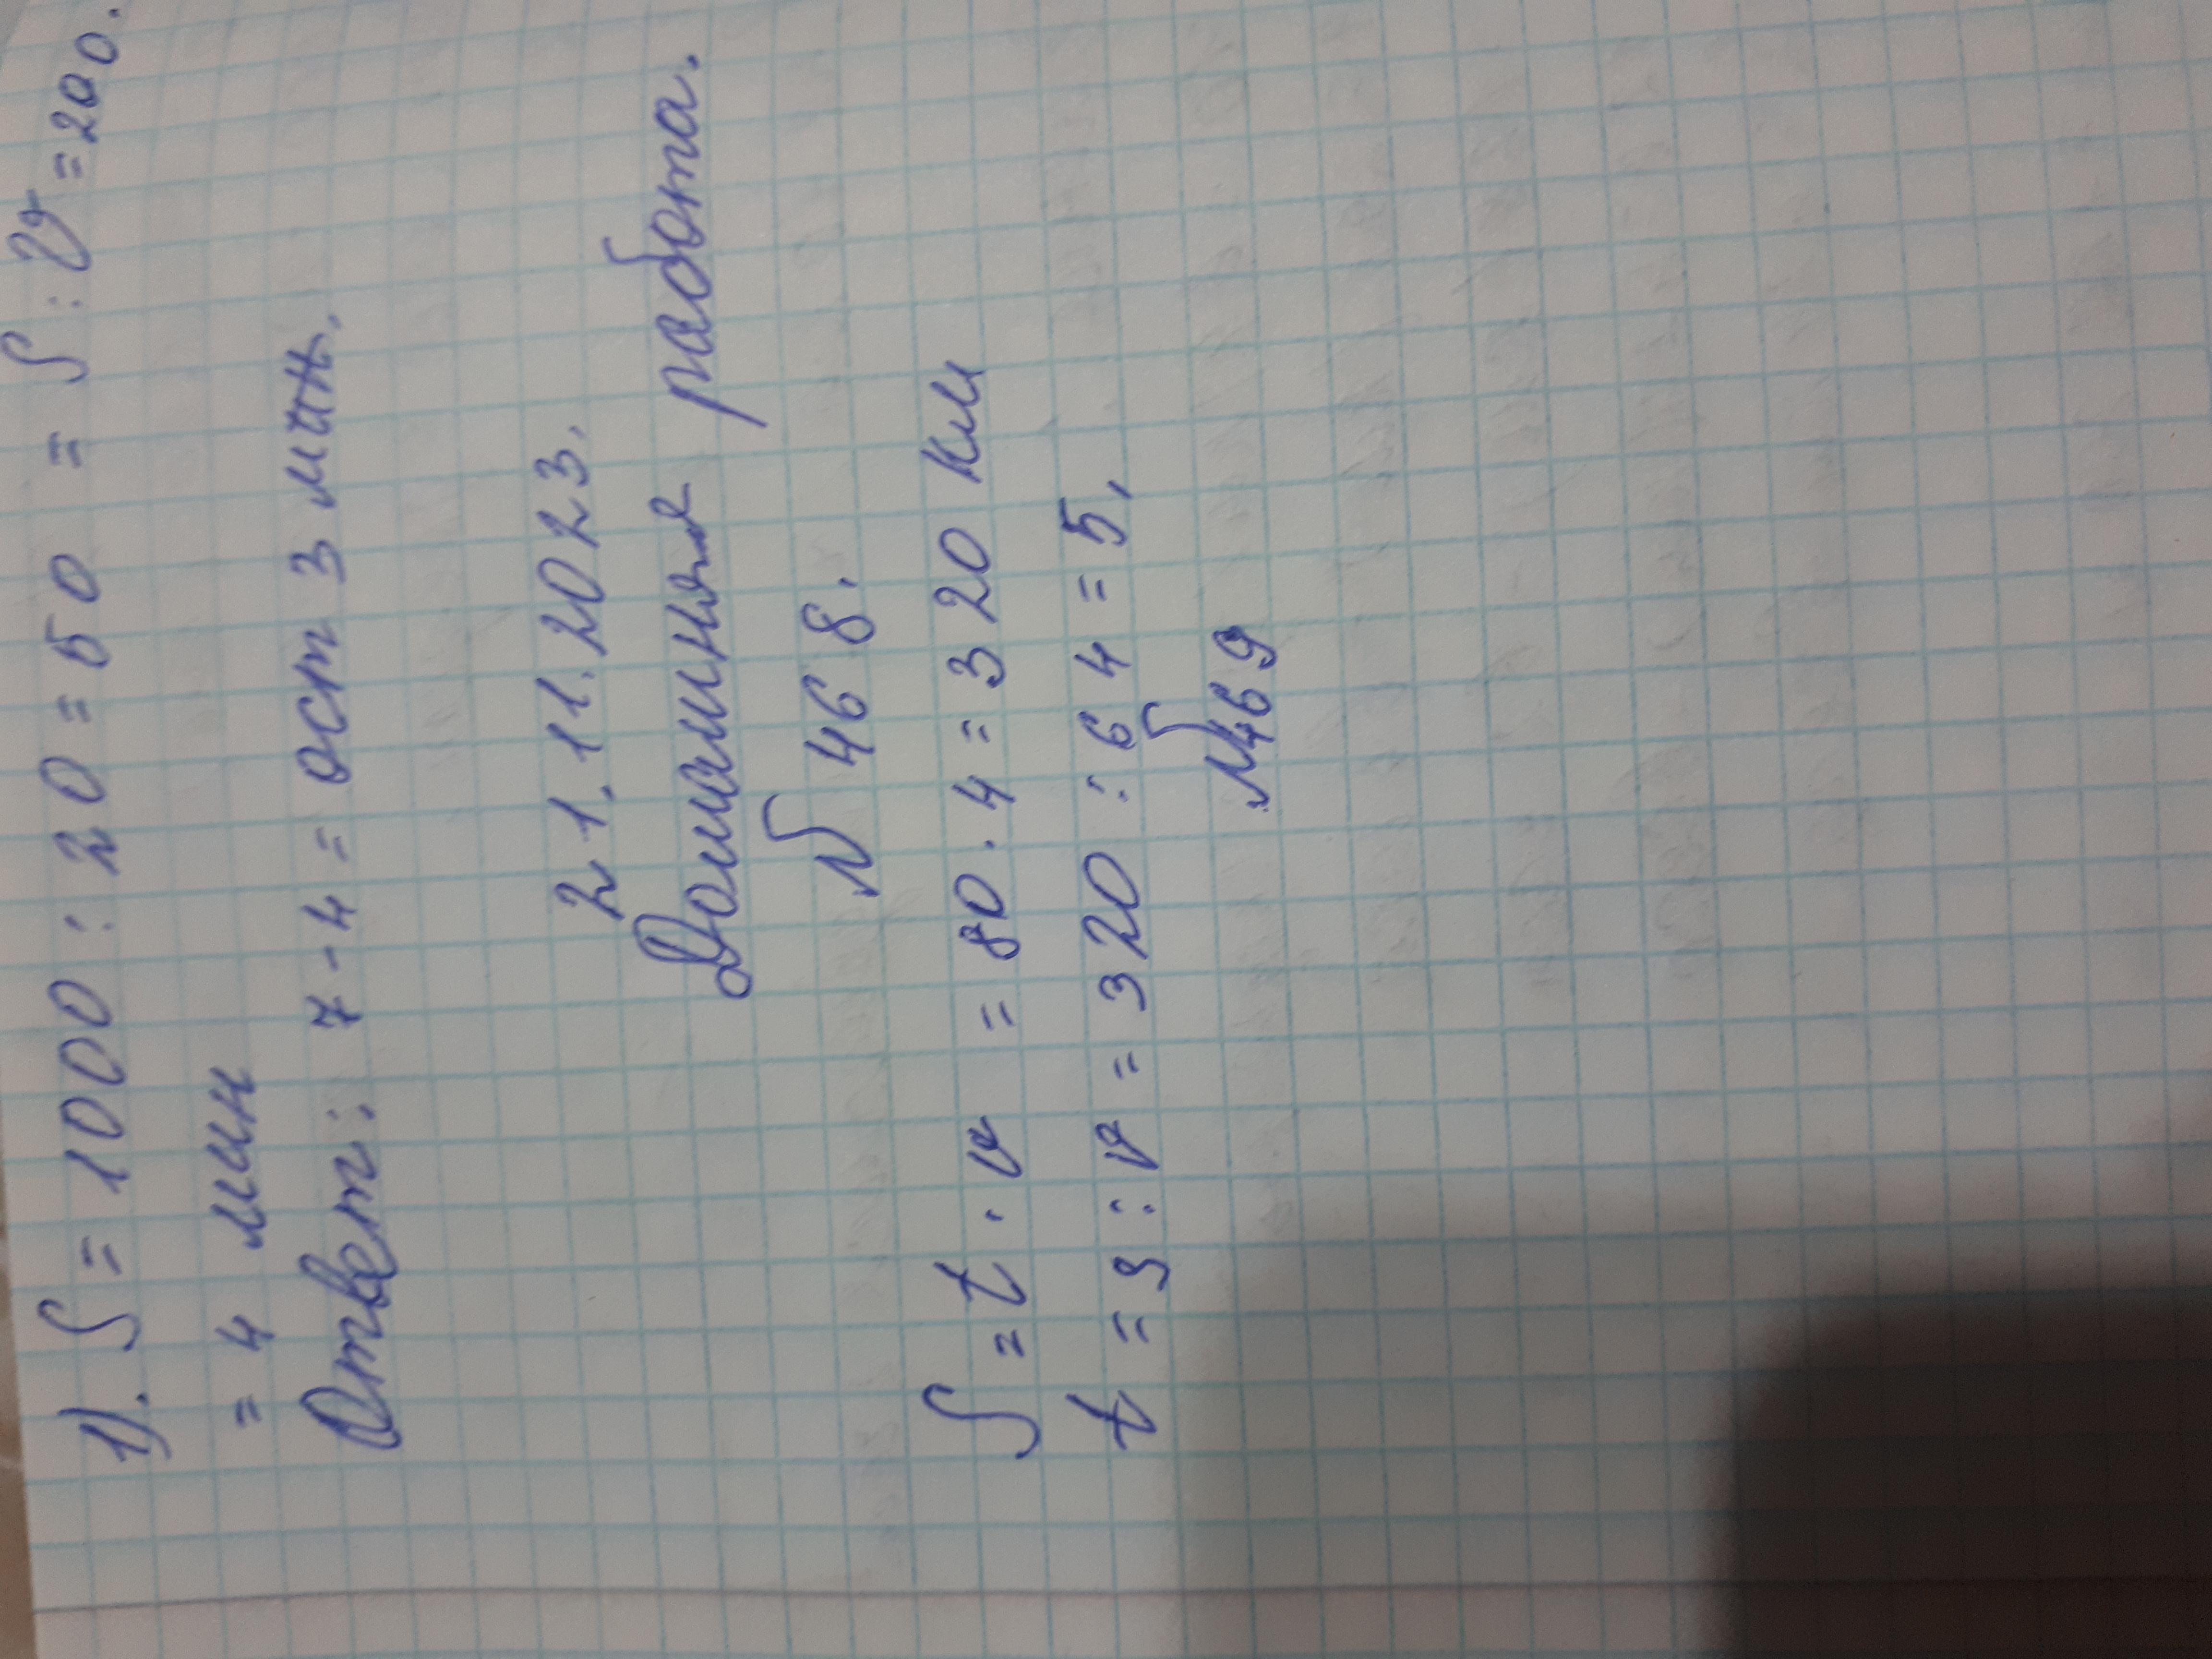 1). S = 1000 : 20 = 50 = S : V = 200.
= 4 мин
Ответ: 7 - 4 = ост 3 мин.
21.11.2023.
Домашняя работа.
№ 468.
S = t · v = 80 · 4 = 320 км
t = s : v = 320 : 64 = 5,
№469